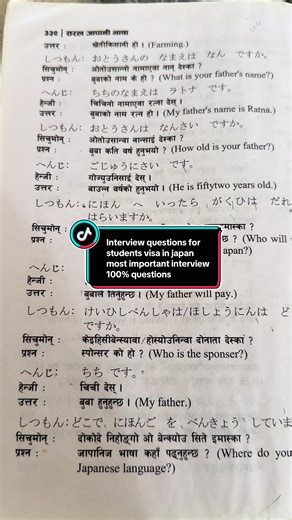 ३३० | सरल जापानी भाषा
उत्तर : खेतीकिसानी हो । (Farming.)
しつもん: おとうさんの なまえは なん ですか。
सिचुमोन् : ओतोउसान्नो नामाएवा नान् देस्का ?
प्रश्न : बुबाको नाम के हो ? (What is your father's name?)
へんじ: ちちのなまえは ラトナ です。
हेन्जी : चिचिनो नामाएवा रत्ना देस् ।
उत्तर : बुबाको नाम रत्न हो । (My father's name is Ratna.)
しつもん: おとうさんは なんさい ですか。
सिचुमोन् : ओतोउसान्वा नान्साई देस्का ?
प्रश्न : बुबा कति बर्ष हुनुभयो ? (How old is your father?)
へんじ: ごじゅうにさい です。
हेन्जी : गोज्युउनिसाई देस् ।
उत्तर : बाउन्न बर्षको हुनुभयो । (He is fiftytwo years old.)
しつもん: にほん へ いったら がくひは だれ
はらいますか。
सिचुमोन्
इमास्का ?
प्रश्न
छ ? (Who will
apan?)
へんじ:
हेन्जी :
उत्तर : बुबाले तिर्नुहुन्छ । (My father will pay.)
しつもん: けいひしべんしゃは/ほしょうにんは ど
ですか。
सिचुमोन् : केइहिसीबेन्स्यावा/होस्योउनिन्वा दोनाता देस्का ?
प्रश्न : स्पोन्सर को हो ? (Who is the sponser?)
へんじ: ちち です。
हेन्जी : चिची देस् ।
उत्तर : बुबा हुनुहुन्छ । (My father.)
しつもん: どこで、にほんご を、べんきょう していま
सिचुमोन् : दोकोदे निहोन्गो ओ बेन्क्योउ सिते इमास्का ?
प्रश्न : जापानिज भाषा कहाँ पढ्नुहुन्छ ? (Where do you
Japanese language?)
Interview questions for
students visa in japan
most important interview
100% questions